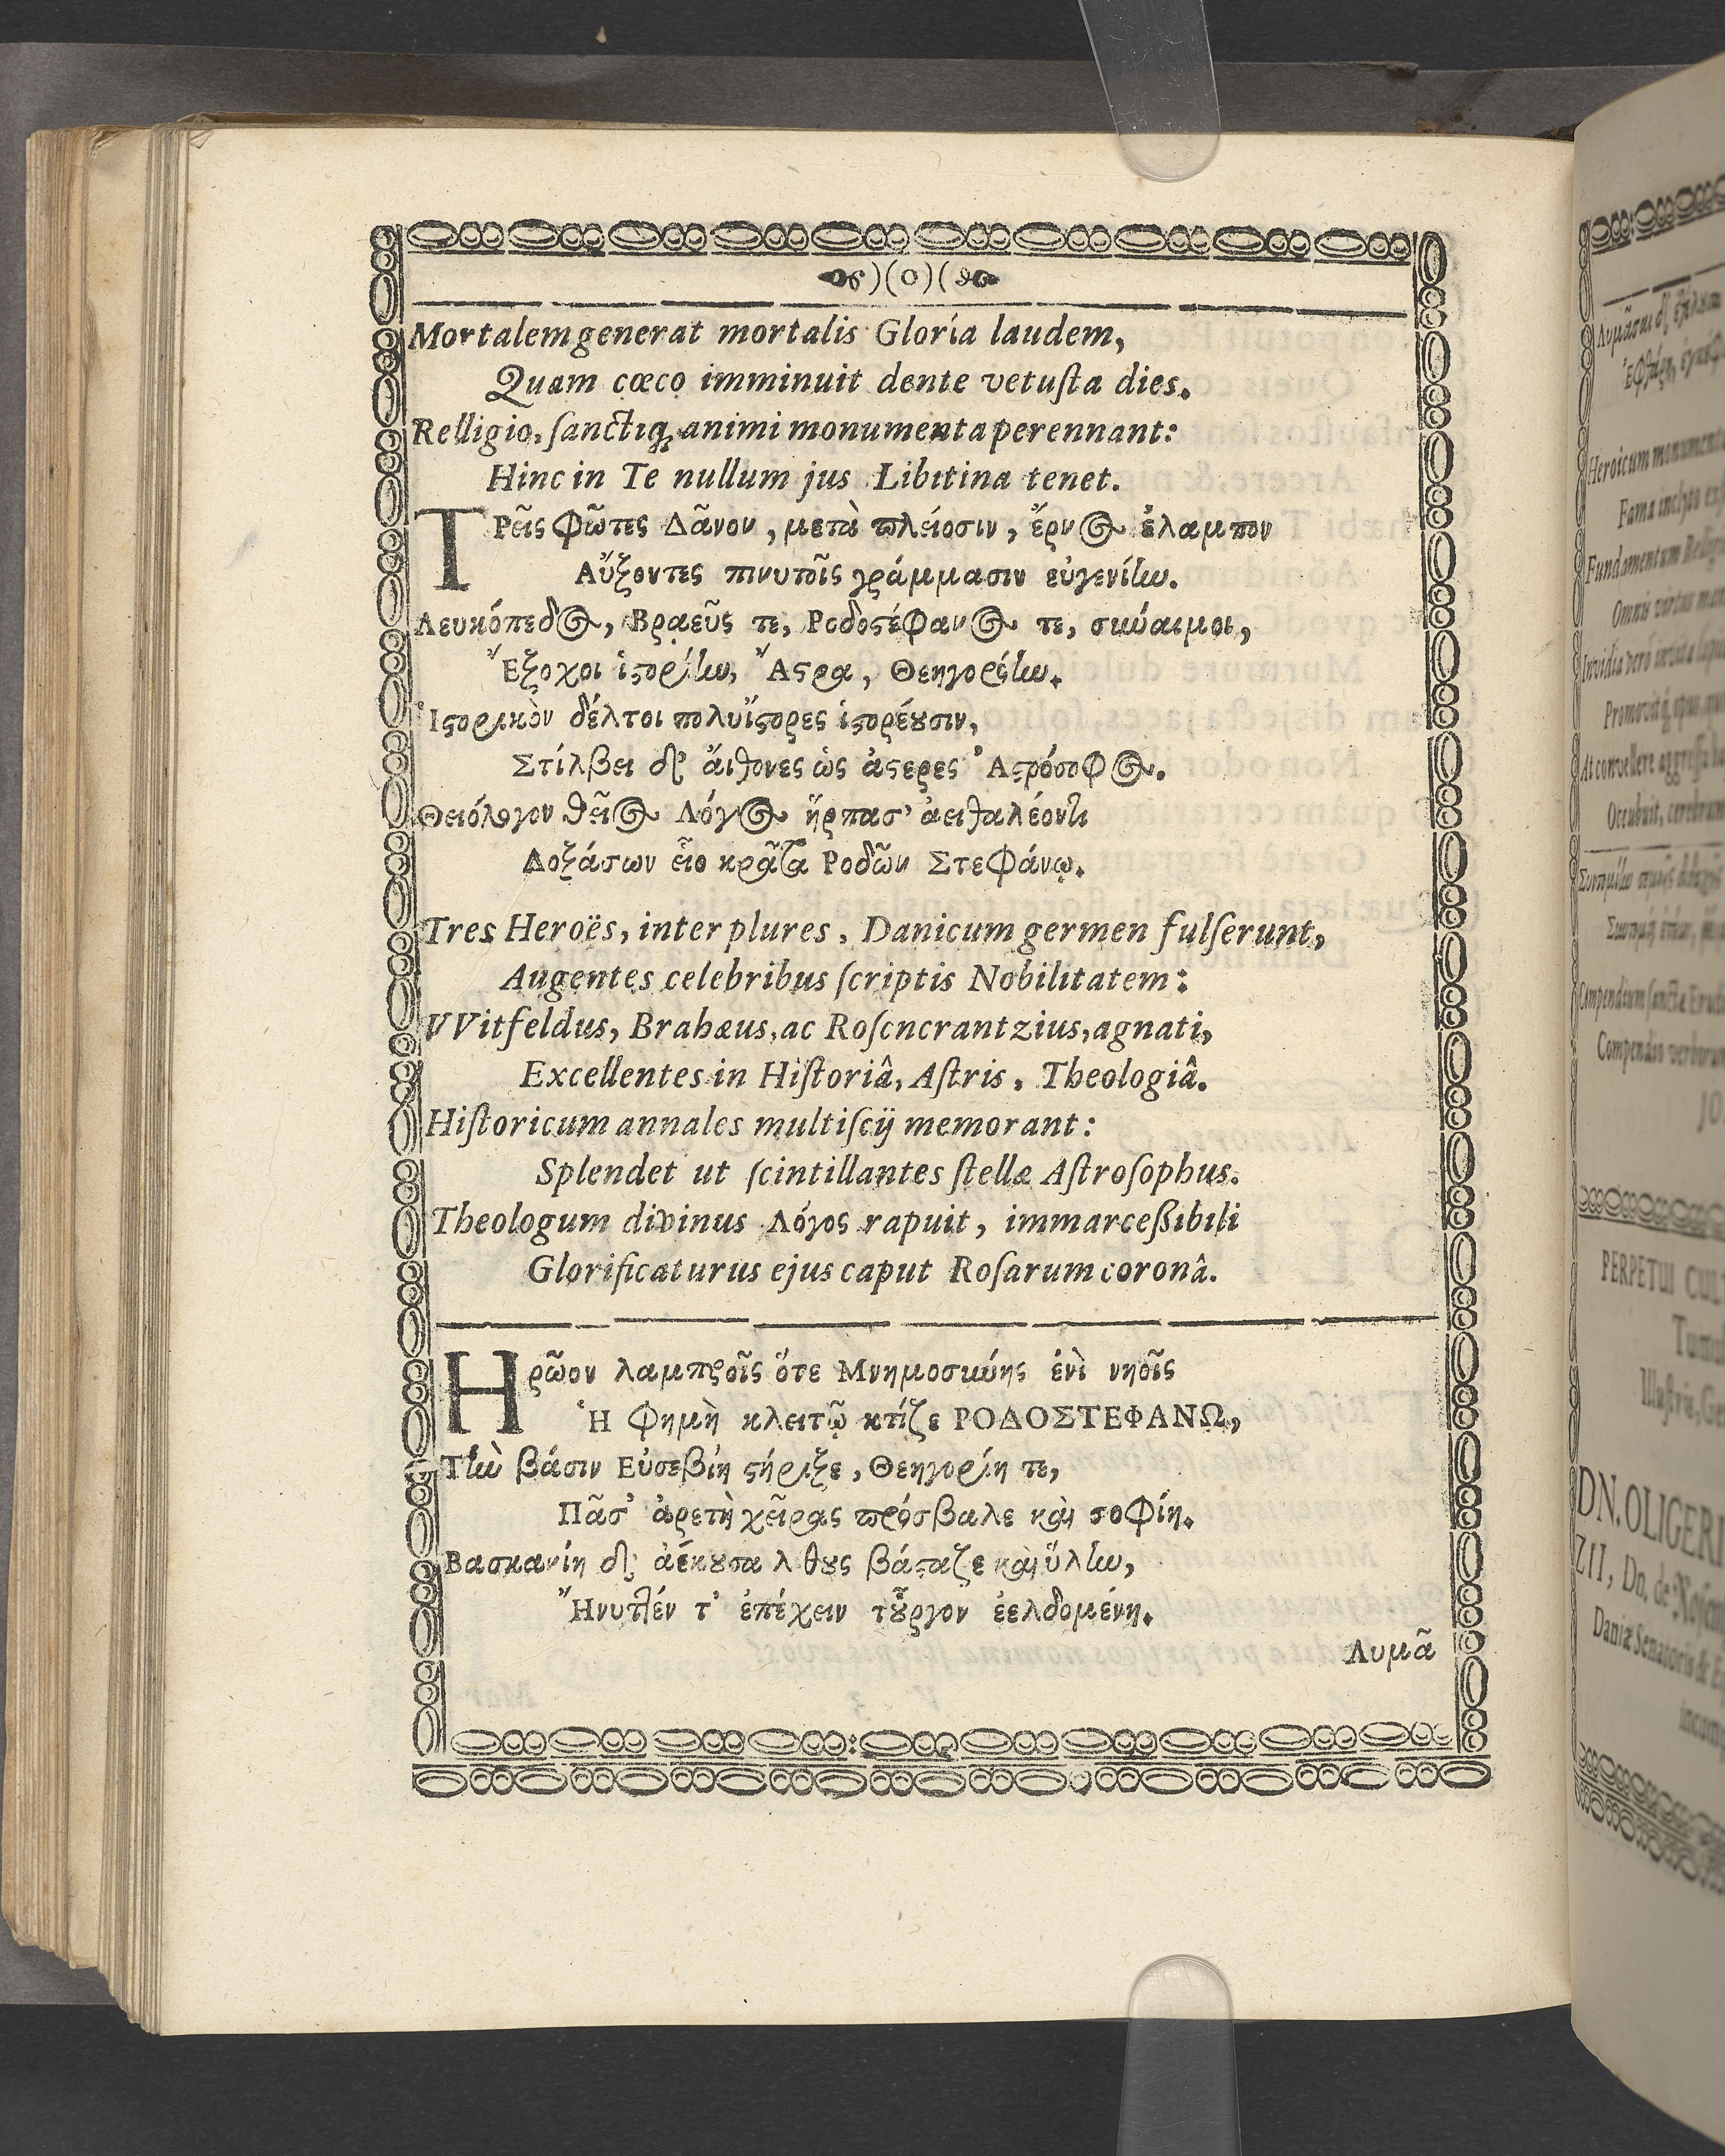 )(0)(
Mortalem generat mortalis Gloria laudem,
Quam cœco imminuit dente vetuſta dies.
Relligio, ſanctiq; animi monumenta perennant:
Hinc in Te nullum jus Libitina tenet.
ΤΡεῖς φῶτες Δᾶνον, μετὰ πλείοσιν, ἔρνος ἔλαμπον
Αὔξοντες πινυτοῖς γράμμασιν εὐγενίην.
Λευκόπεδος, Βραεῦς τε, Ροδοϛέφανος τε, σκύαιμοι,
Ἔξοχοι ἱϛορίην, Ἄϛρα, Θεηγορίην.
Ἱϛορικὸν δέλτοι πολυΐϛορες ἱϛορέουσιν,
Στίλβει δ' ἄιθονες ὡς ἀϛερες Ἀϛρόσοφος.
Θειόλογον θεῖος Λόγος ἥρπασ' ἀειθαλέοντι
Δοξάσων εἷο κρᾶτα Ροδῶν Στεφάνῳ.
Tres Heroës, inter plures, Danicum germen fulſerunt,
Augentes celebribus ſcriptis Nobilitatem:
VVitfeldus, Brahæus, ac Roſencrantzius, agnati,
Excellentes in Hiſtoriâ, Aſtris, Theologiâ.
Hiſtoricum annales multiſcij memorant:
Splendet ut ſcintillantes ſtellæ Aſtroſophus.
Theologum divinus Λόγος rapuit, immarceßibili
Glorificaturus ejus caput Roſarum coronâ.
Ηρῶον λαμπροῖς ὅτε Μνημοσύνης ἐνὶ νηοῖς
Ἡ φημὴ κλειτῷ κτίζε ΡΟΔΟΣΤΕΦΑΝΩ,
Τὴν βάσιν Εὐσεβίη ϛήριξε, Θεηγορίη τε,
Πᾶσ' ἀρετὴ χεῖρας πρόσβαλε καὶ σοφίη.
Βασκανίη δ' ἀέκουσα λθους βάϛαζε καὶ ὕλην,
Ἤνυτλέν τ' ἐπέχειν τοὖργον ἐελδομένη.
Λυμᾶ